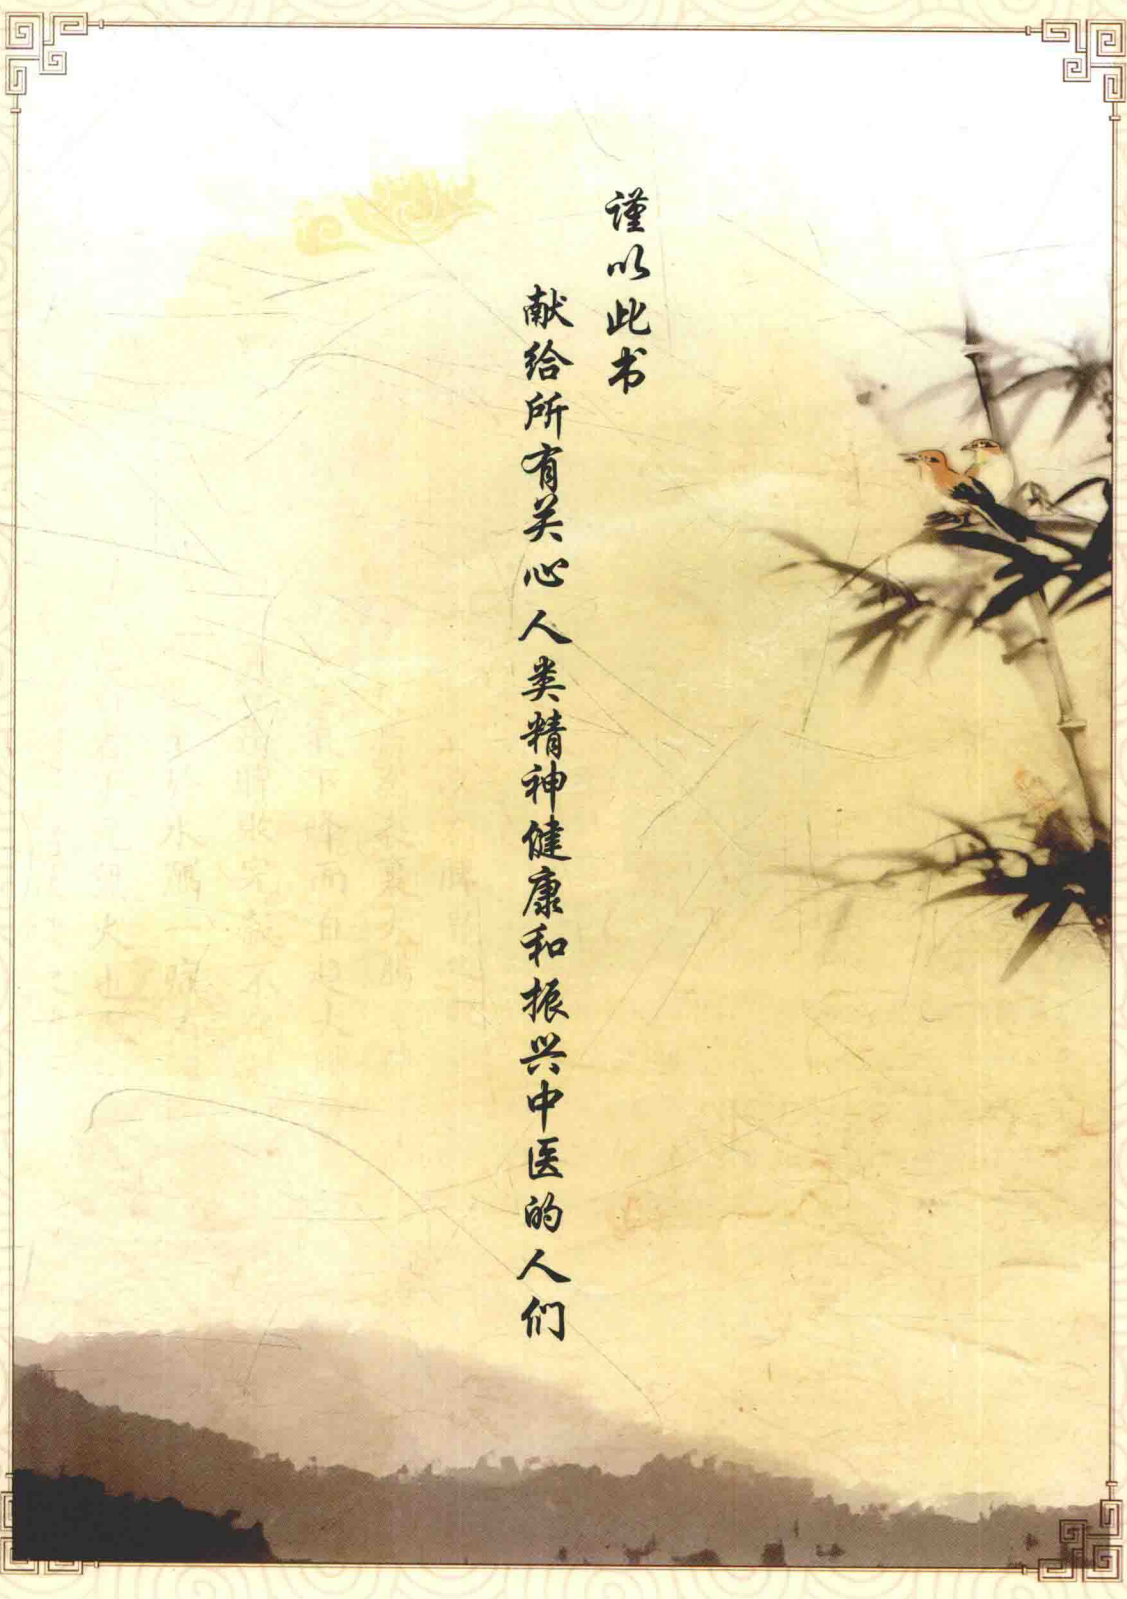 谨以此书
献给所有关心人类精神健康和振兴中医的人们